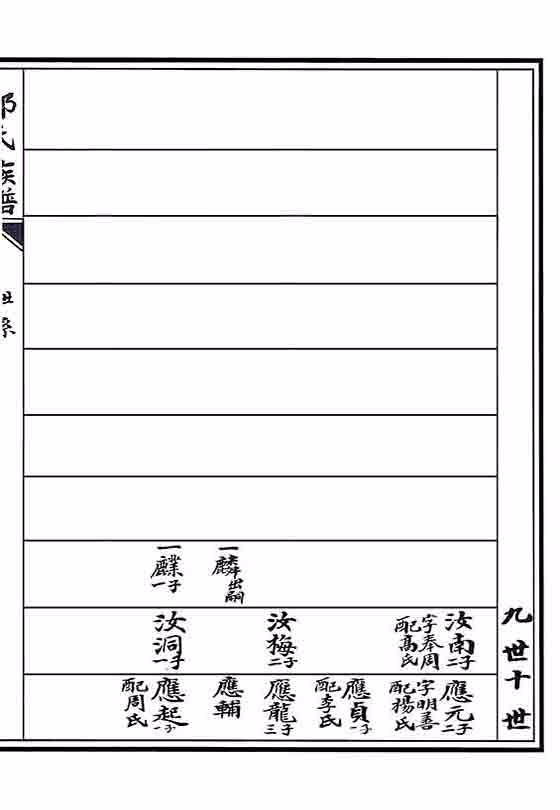 九世十世
一麟出嗣
一䴆一子
汝南二子
字奉周
配高氏
汝梅二子
汝洞一子
應元二子
字明善
配楊氏
應貞一子
配李氏
應龍三子
應輔
應起一子
配周氏
氏族譜
世系